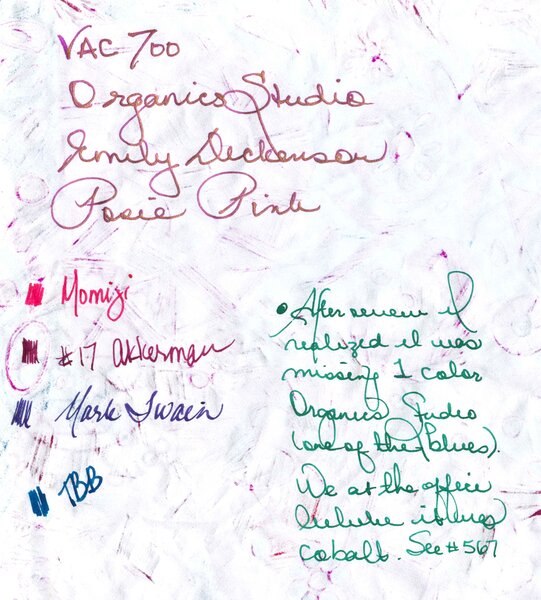 VAC 700
Organics Studio
Emily Dickenson
Posie Pink
Momiji
#17 Akkerman
Mark Twain
TBB
After review I
realized I was
missing 1 color
Organics Studio
(one of the blues).
We at the office
believe it was
cobalt. See #567